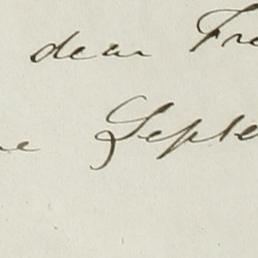 dear Fre
e Septe